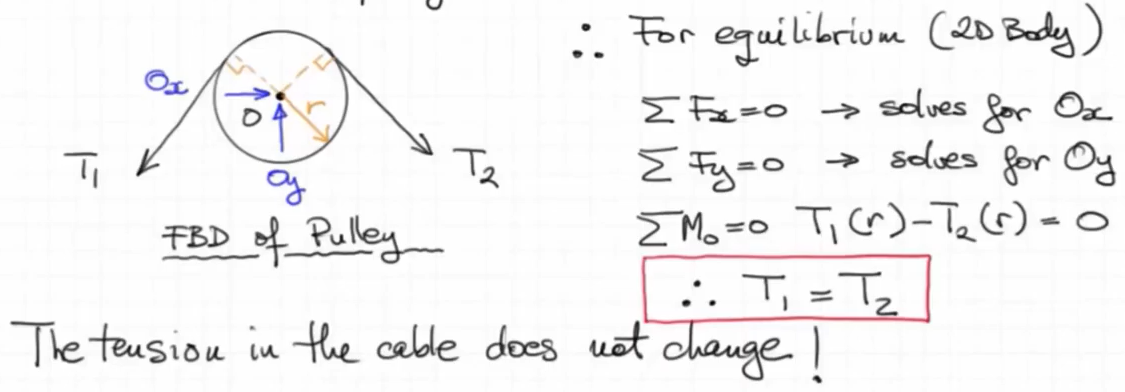 Oₓ
O
r
T₁
T₂
Oy
FBD of Pulley
∴ For equilibrium (2D Body)
∑ Fx=0 → solves for Ox
∑ Fy=0 → solves for Oy
∑M₀=0 T₁(r)-T₂(r) = 0
∴ T₁ = T₂
The tension in the cable does not change!